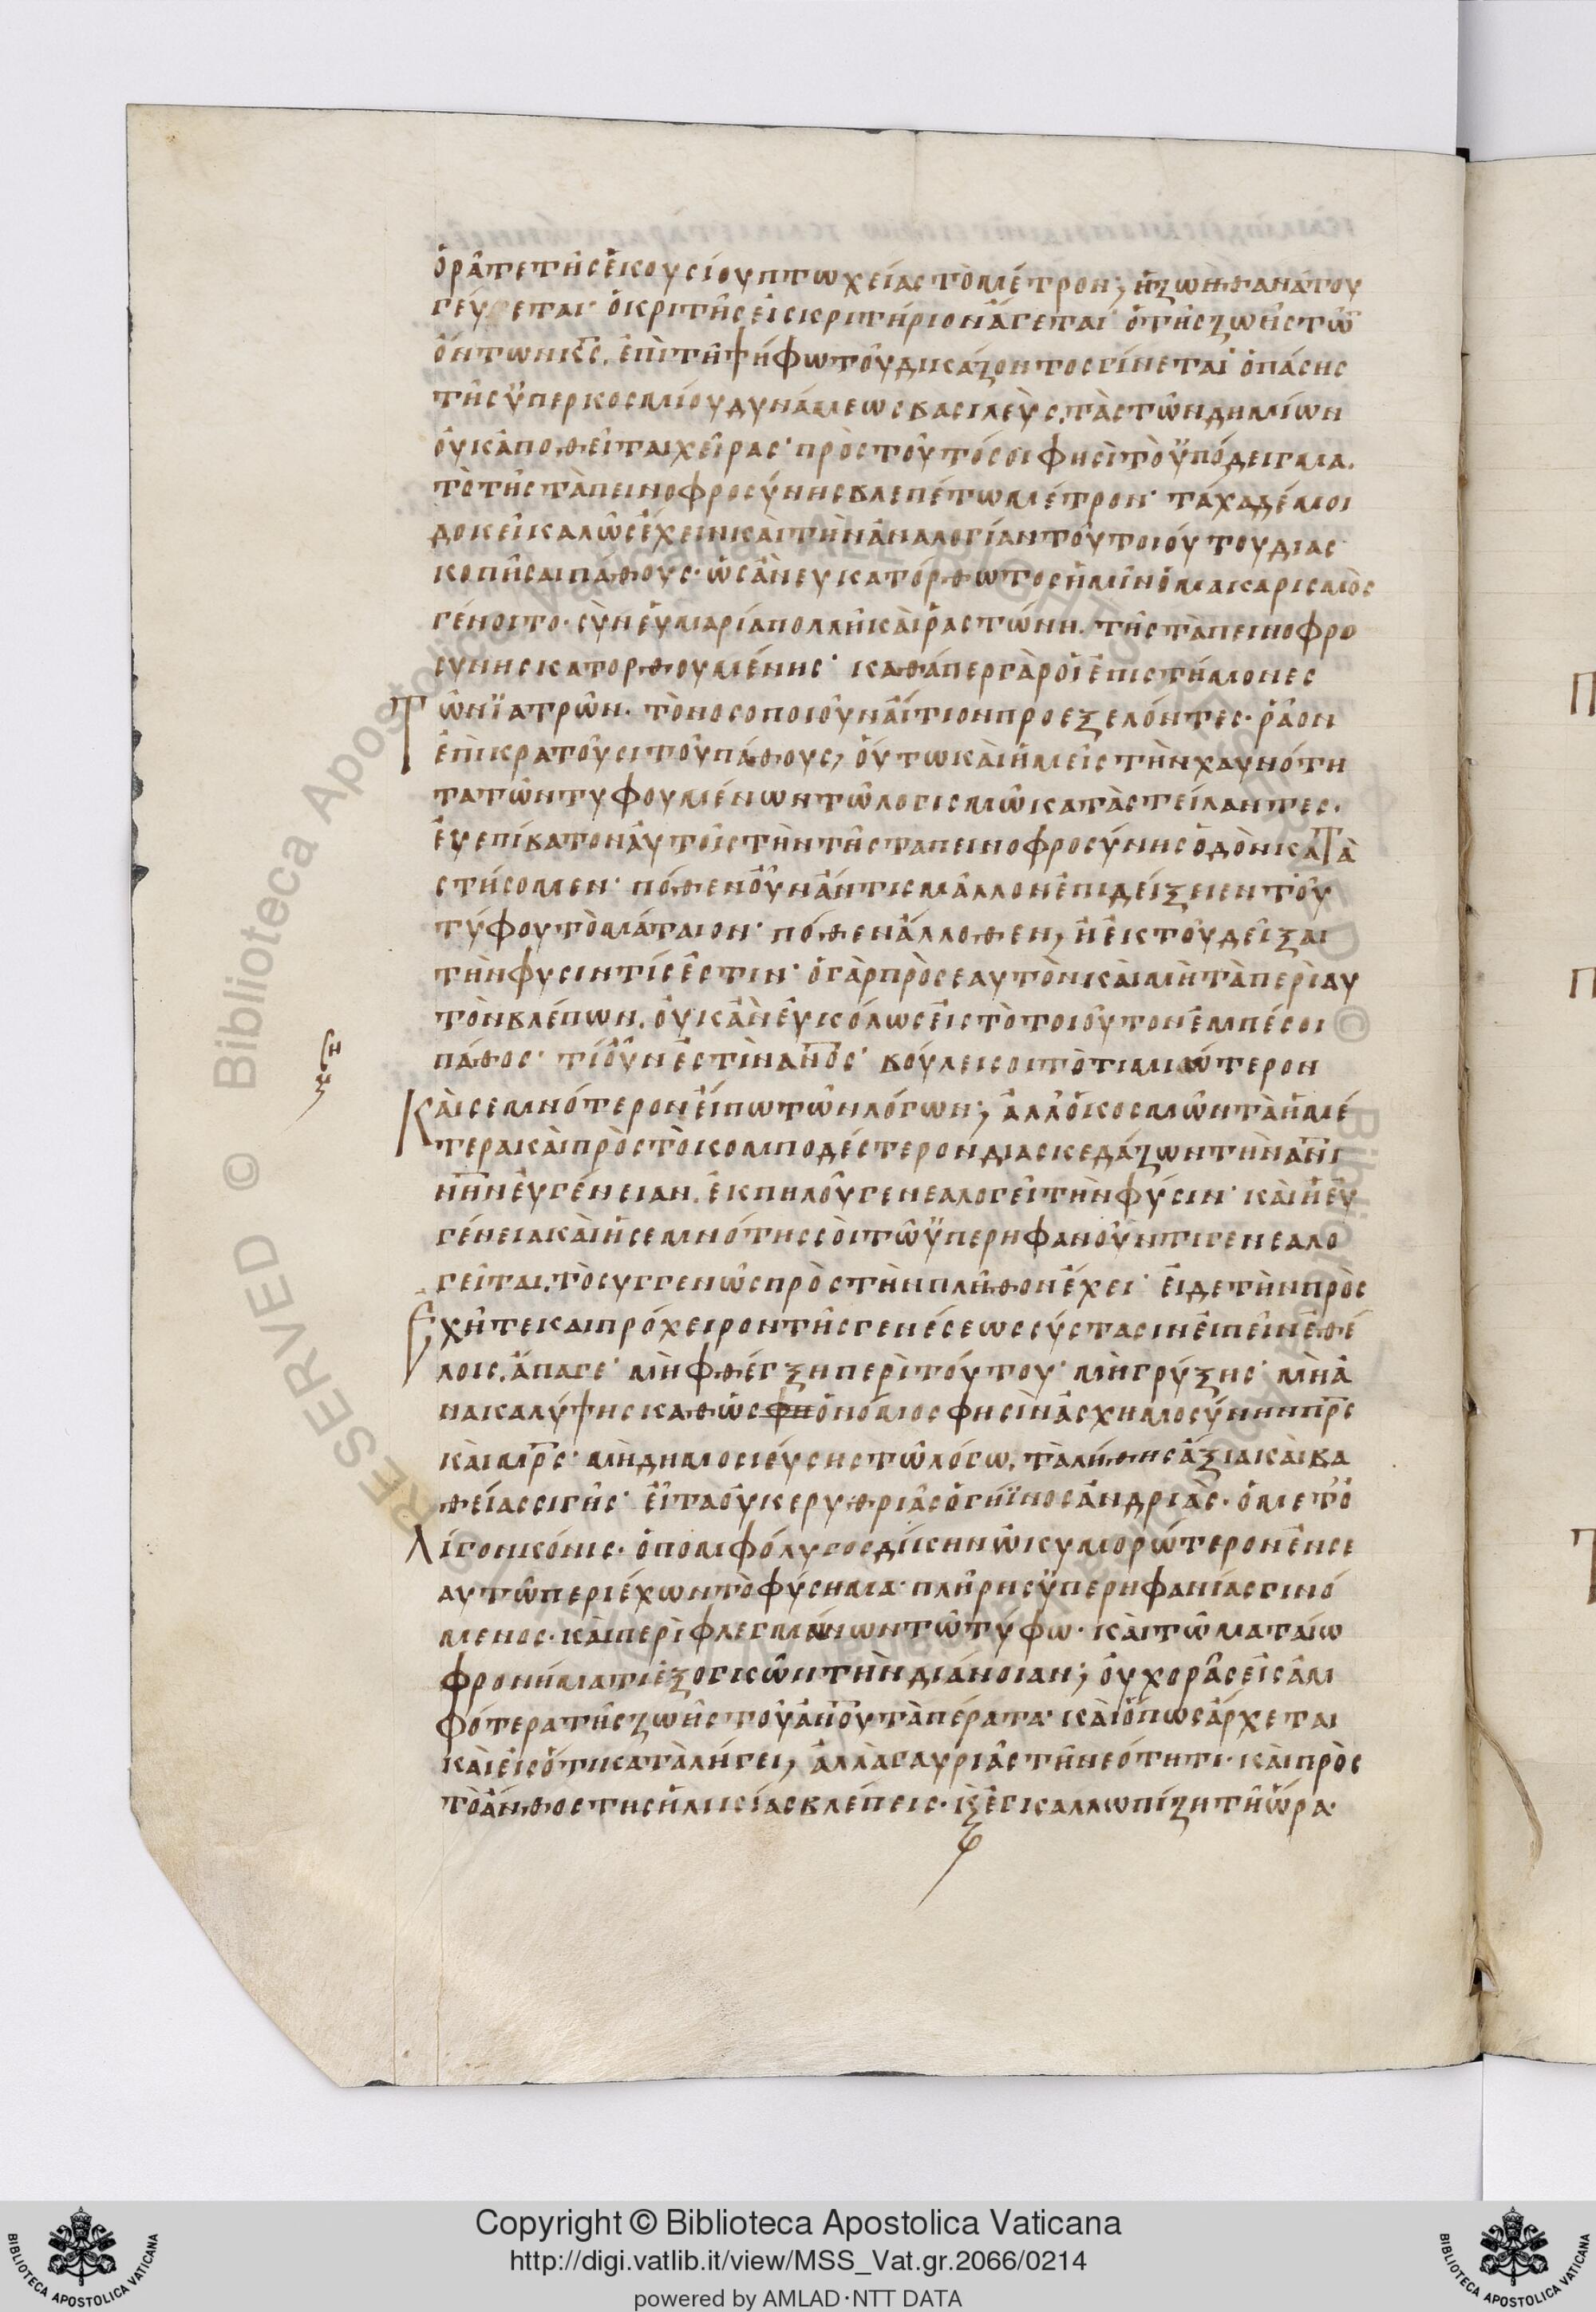 ὁρᾶτε τῆς ἑκουσίου πτωχείας τὸ μέτρον; ἡ ζωὴ θανάτου
γεύεται· ὁ κριτῆς εἰς κριτήριον ἄγεται· ὁ τῆς ζωῆς τῶ̅
ὄντων κ̅ς, ἐπὶ τῆ ψήφω τοῦ δικάζοντος γίνεται· ὁ πάσης
τῆς ὑπερκοσμίου δυνάμεως βασιλεὺς, τὰς τῶν δημίων
οὐκ ἀποθεῖται χεῖρας· πρὸς τοῦτό σοι φησὶ τὸ ὑπόδειγμα.
τὸ τῆς τὰπεινοφροσύνης βλεπέτω μέτρον· τάχα δέ μοι
δοκεῖ καλῶς ἔχειν καὶ τὴν ἀναλογίαν τοῦ τοιούτου διας
κοπῆσαι πάθους· ὡς ἂν εὐκατόρθωτος ἡμῖν ὁ μακαρισμὸς
γένοιτο· σὺν εὐμαρία πολλῆ καὶ ῥαστώνη. τῆς τὰπεινοφρο
συνης κατορθουμένης· καθάπερ γὰρ οἱ ἐπιστήμονες
Τῶν ϊατρῶν· τὸ νοσοποιοῦν αἴτιον προεξελόντες· ῥᾶον
ἐπικρατοῦσι τοῦ πάθους, οὕτω καὶ ἡμεῖς τὴν χαυνότη
τα τῶν τυφουμένων τῶ λογισμῶ κατὰστείλαντες.
εὐεπίβατον αὐτοῖς τὴν τῆς ταπεινοφροσύνης ὁδὸν κατὰ
στήσομεν· πόθεν οὖν ἄν τις μᾶλλον ἐπιδείξειεν τοῦ
τύφου τὸ μάταιον· πόθεν ἄλλοθεν, ἢ ἐκ τοῦ δεῖξαι
τὴν φυσιν τίς ἐστιν· ὁ γὰρ πρὸς εαυτὸν καὶ μὴ τὰ περὶ αυ
τὸν βλέπων, οὐκ ἂν εὐκόλως εἰς τὸ τοιοῦτον ἐμπέσοι
πάθος· τί οὖν ἐστὶν α̅ν̅ος· βούλει σοι τὸ τιμιώτερον
Καὶ σεμνότερον εἴπω τῶν λόγων; ἀλλ' ὁ κοσμῶν τὰ ἡμέ
τερα καὶ πρὸς τὸ κομποδέστερον διασκεδάζων τὴν α̅ν̅ι
νην εὐγένειαν, ἐκ πηλοῦ γενεαλογεῖ τὴν φύσιν· καὶ ἡ εὐ
γένεια καὶ ἡ σεμνότης σὸι τῶ ὑπερηφανοῦντι γενεαλο
γεῖται, τὸ συγγενῶς πρὸς τὴν πλῆθον ἔχει· εἰ δε τὴν πρὸς
Εχῆ τε και πρόχειρον τῆς γενέσεως σύστασιν εἰπεῖν ἐθέ
λοις, ἄπαγε· μὴ φθέγξη περὶ τούτου· μὴ γρύξης· μὴ ἀ
νακαλύψης καθὼς ὁ νόμος φησὶν ἀσχημοσύνην π̅ρ̅ς
καὶ μ̅ρ̅ς· μὴ δημοσιεύσης τῶ λόγω, τὰ λήθης ἄξια καὶ βα
θείας σιγῆς· εἶτα οὐκ ερυθριᾶς ὁ γήϊνος ἀνδριὰς· ὁ μετ' ὀ
Λίγον κόνις· ὁ πομφόλυγος δίκην ὠκυμορώτερον ἐν σε
αυτῶ περιέχων τὸ φύσημα· πλήρης ὑπερηφανίας γινό
μενος· καὶ περὶ φλεγμαίνων τῶ τύφω· καὶ τῶ ματαίω
φρονήματι ἐξογκῶν τὴν διάνοιαν; οὐχ ορᾶς εἰς ἀμ
φότερα τῆς ζωῆς τοῦ ἀ̅ν̅ου τὰ πέρατα· καὶ ὅπως ἄρχεται
καὶ εἰς ὅτι κατὰλήγει, ἀλλὰ γαυριᾶς τῆ νεότητι· καὶ πρὸς
τὸ ἄνθος της ἡλικίας βλέπεις· κ̀ ἐγκαλλωπίζη τῆ ὥρα·
Copyright © Biblioteca Apostolica Vaticana
http://digi.vatlib.it/view/MSS_Vat.gr.2066/0214
powered by AMLAD·NTT DATA